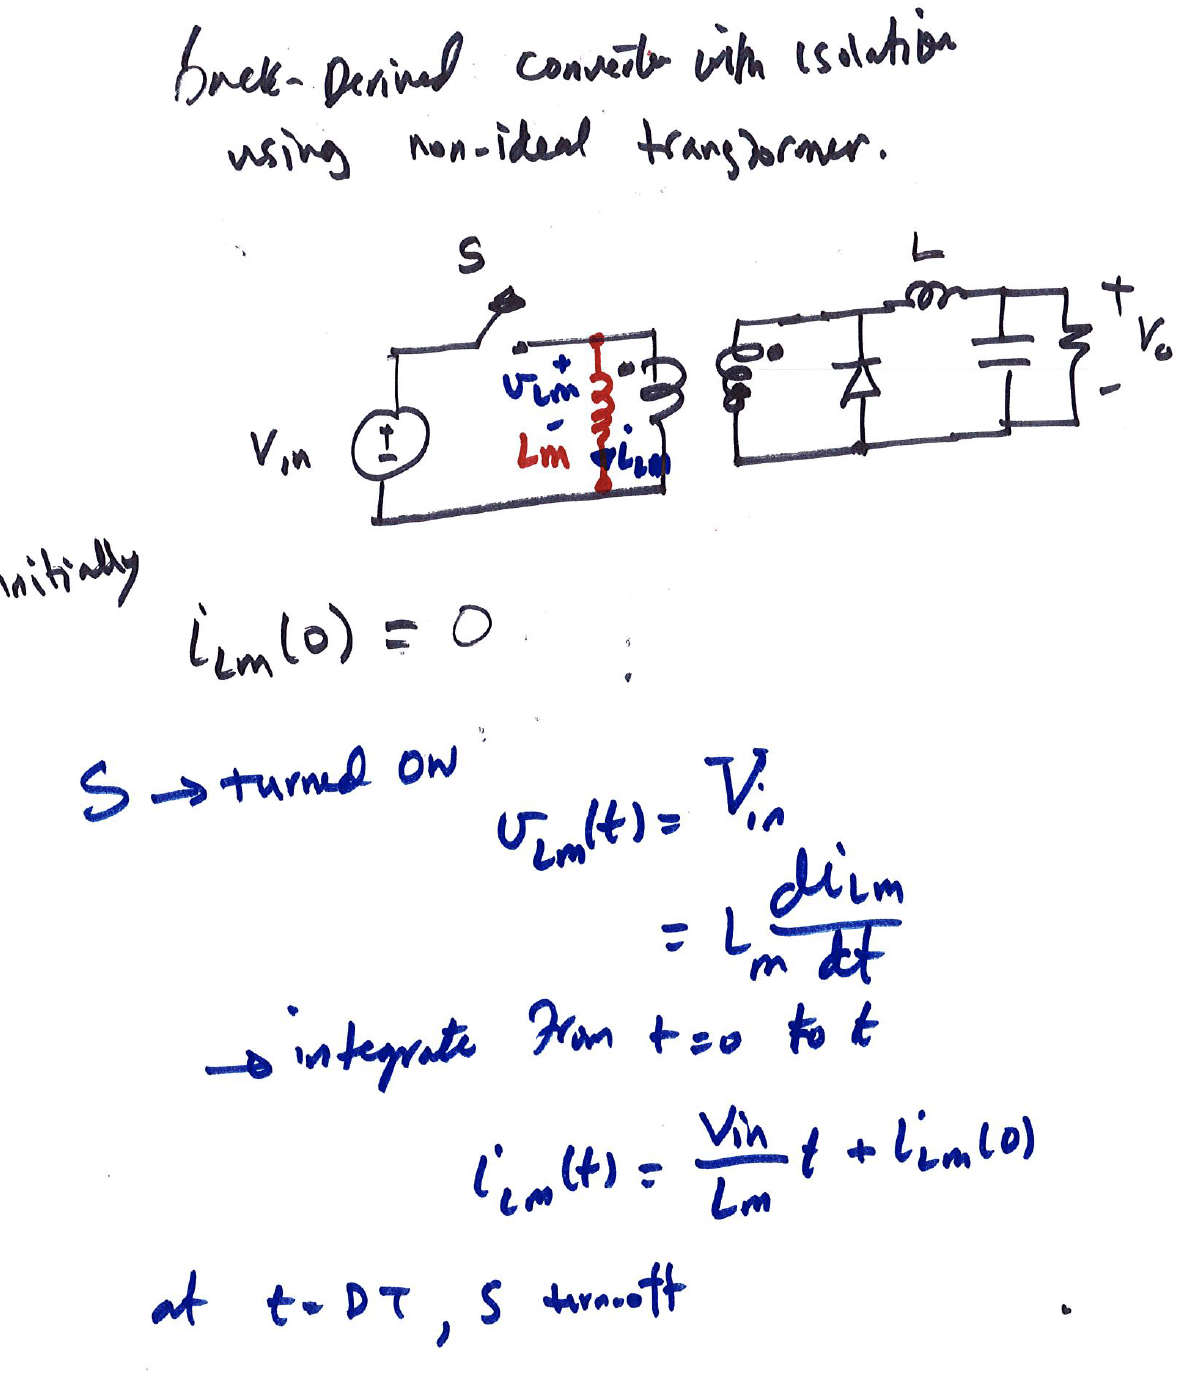 buck-Derived converter with isolation
using non-ideal transformer.
S
L
+
Vo
-
+
vLm
-
Lm
iLm
Vin
+
-
initially
iLm(0) = 0
S → turned ON
vLm(t) = Vin
= Lm diLm/dt
→ integrate from t=0 to t
iLm(t) = Vin/Lm t + iLm(0)
at t=DT, S turn-off